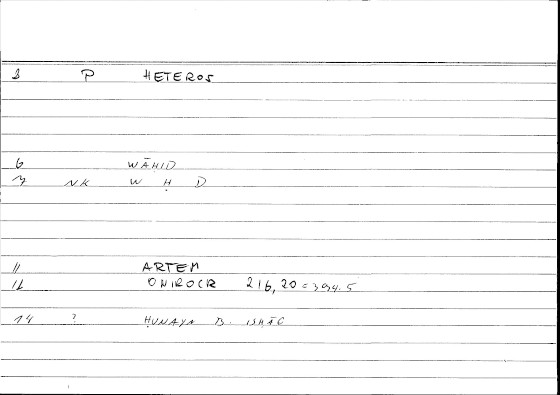 3 P HETEROS
6 WĀḤID
7 NK W Ḥ D
11 ARTEM
12 ONIROCR 216,20 = 394.5
14 ? ḤUNAYN B. ISḤĀQ